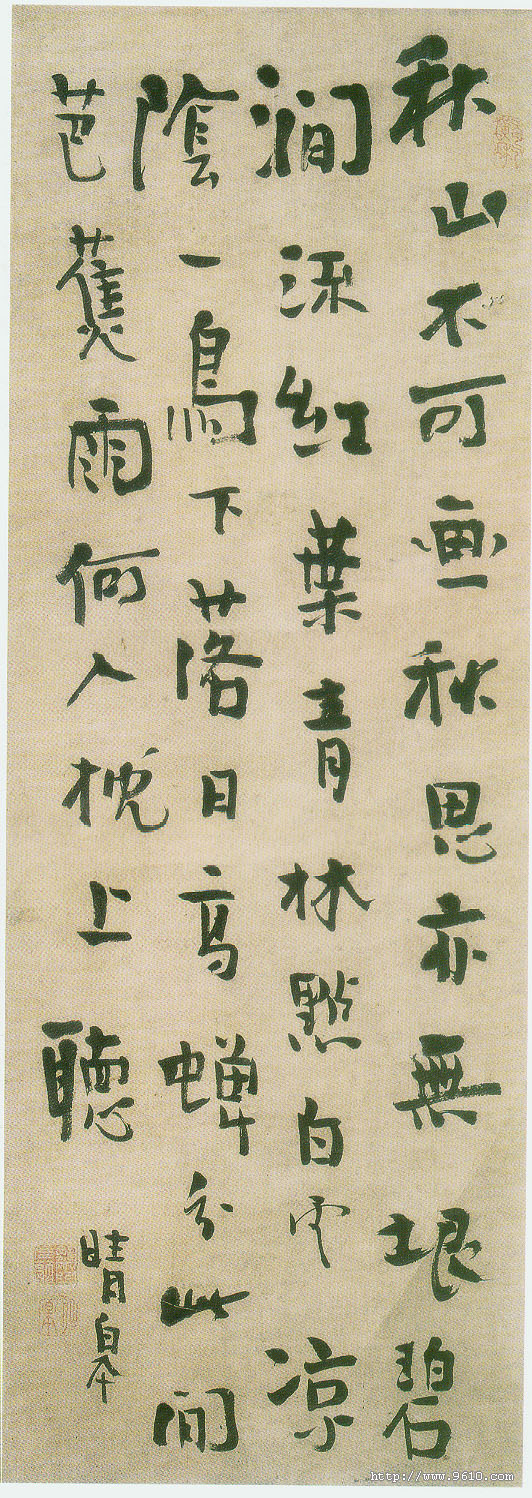 秋山不可畫秋思亦無垠碧
澗流紅葉青林點白雲凉
陰一鳥下落日亂蟬分此間
芭蕉雨何人枕上聽
晴皐
http://www.9610.com